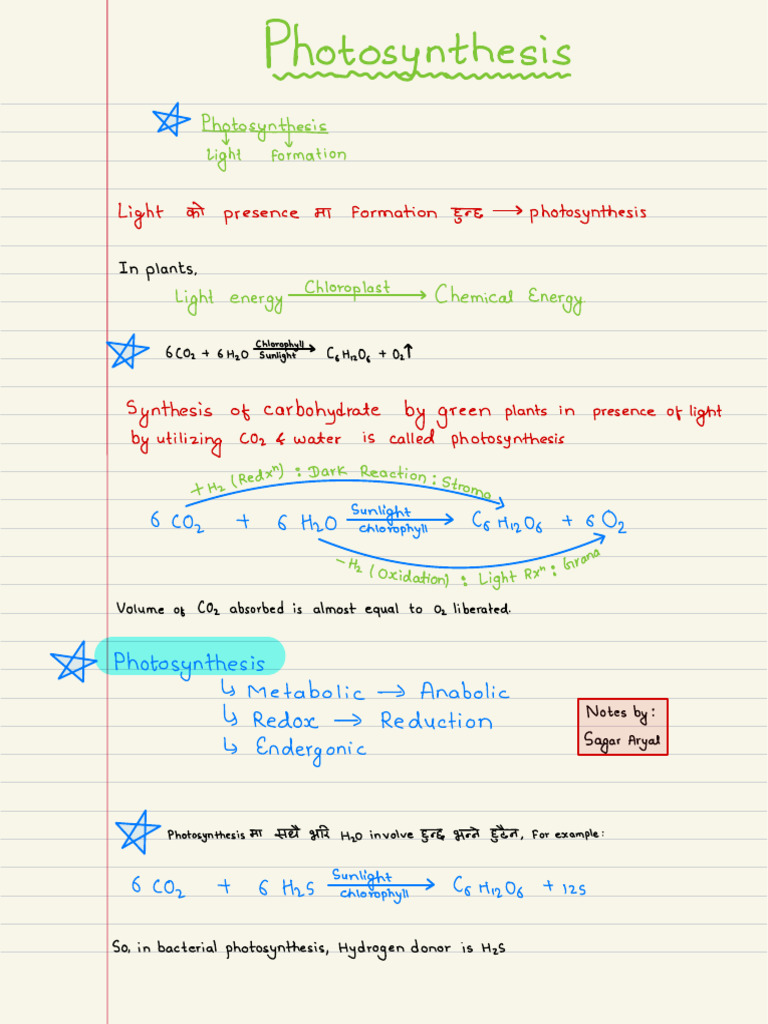 Photosynthesis
Photosynthesis
Light Formation
Light को presence मा Formation हुन्छ → photosynthesis
In plants,
Light energy Chloroplast → Chemical Energy
6CO₂ + 6H₂O Chlorophyll Sunlight → C₆H₁₂O₆ + O₂↑
Synthesis of carbohydrate by green plants in presence of light
by utilizing CO₂ & water is called photosynthesis
+H₂ (Redxⁿ) : Dark Reaction : Stroma
6 CO₂ + 6 H₂O Sunlight chlorophyll → C₆H₁₂O₆ + 6O₂
-H₂ (Oxidation) : Light Rxⁿ : Grana
Volume of CO₂ absorbed is almost equal to O₂ liberated.
Photosynthesis
↳ Metabolic → Anabolic
↳ Redox → Reduction
↳ Endergonic
Notes by:
Sagar Aryal
Photosynthesis मा सधै भरि H₂O involve हुन्छ भन्ने हुदैन, For example:
6 CO₂ + 6 H₂S Sunlight chlorophyll → C₆H₁₂O₆ + 12S
So, in bacterial photosynthesis, Hydrogen donor is H₂S